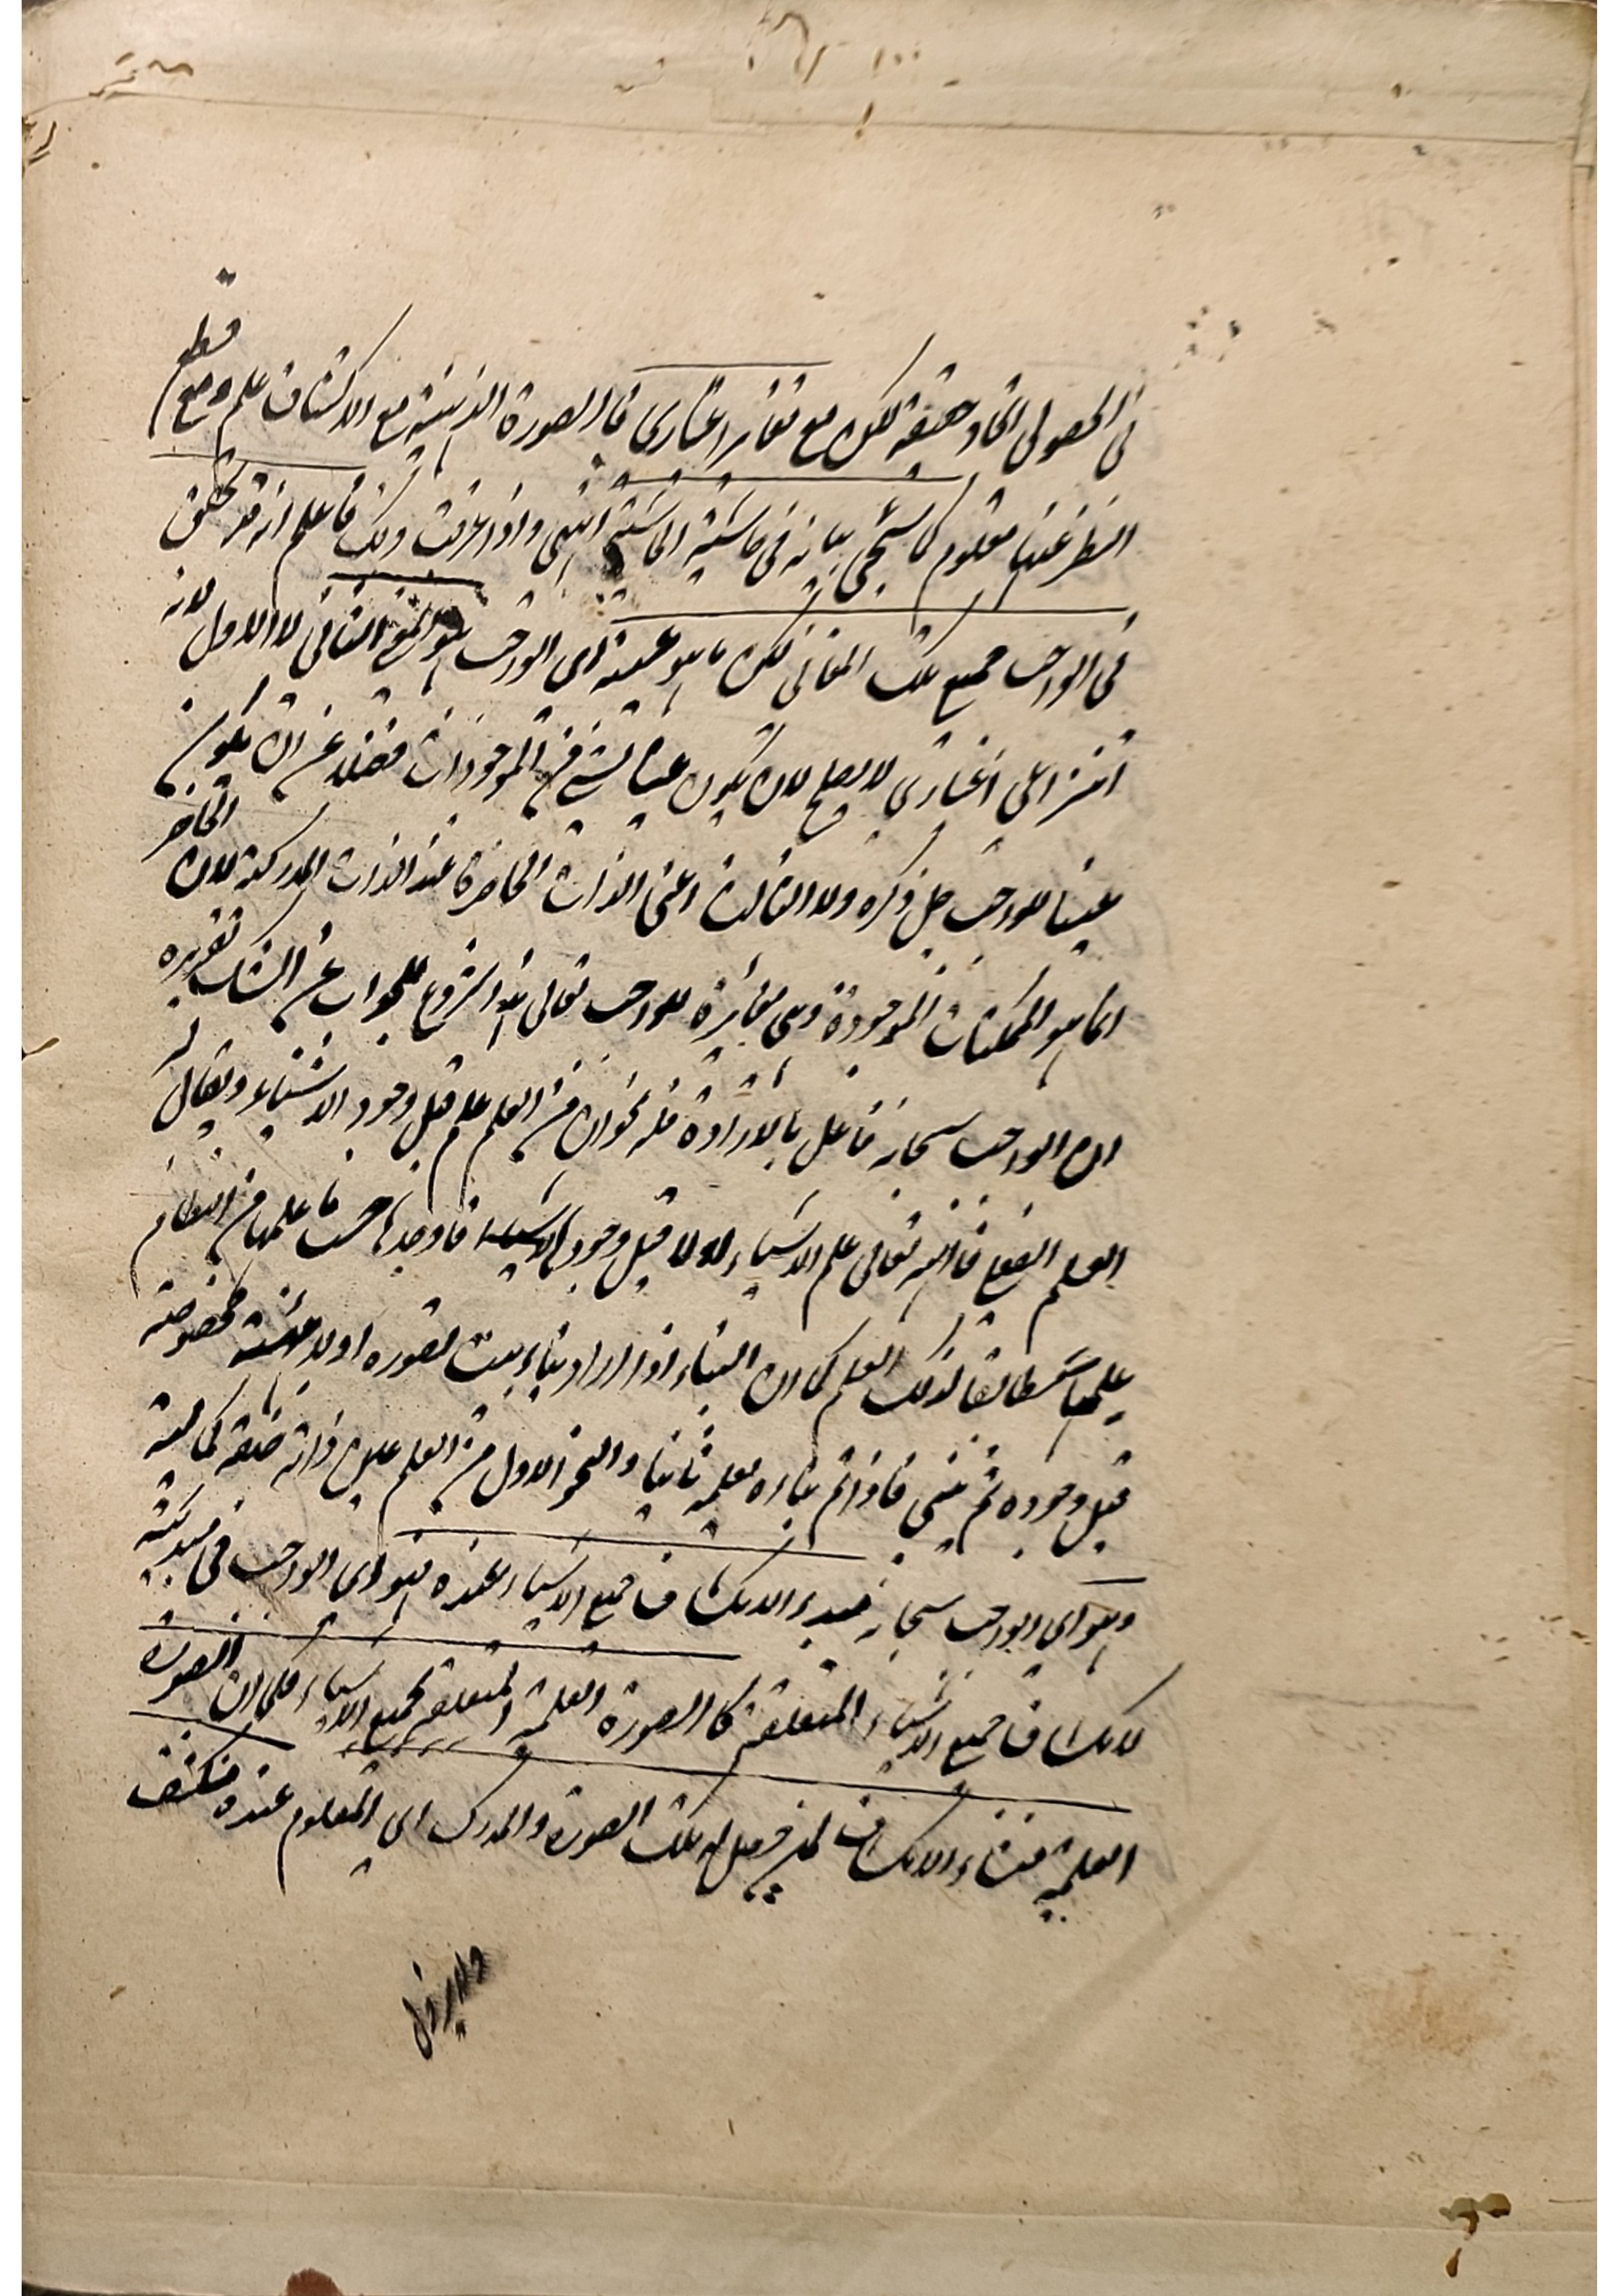 في الحصولي اتحاد حقيقة لكن مع تغاير اعتباري فالصورة الذهنية مع الاكتشاف علم ومع قطع
النظر عنها معلوم كما سيجي بيانه في حاشية الحاشية انتهى واذا عرفت ذلك فاعلم انه قد تحقق
في الواجب جميع تلك المعاني لكن ما هو عينه اى الواجب هو المعنى الثاني لا الاول لانه
انتزاعي اعتباري لا يصلح لان يكون عينا لشئ من الموجودات فضلا عن ان يكون
عينا للواجب جل ذكره ولا الثالث اعنى الذات الحاضرة عند الذات المدركة لان الحاضر
انما هو الممكنات الموجودة وهى مغايرة للواجب تعالى هذا شروع للجواب عن الشك تقريره
ان الواجب سبحانه فاعل بالارادة فله نحوان من العلم علم قبل وجود الاشياء ويقال له
العلم الفعلي فانه تعالى علم الاشياء اولا قبل وجود الاشياء فاوجدها حسب ما علمها من النظام
علمها مطابقا لذلك العلم كما ان البناء اذا اراد بناء بيت تصوره اولا هيئة مخصوصة
قبل وجوده ثم يبنى فاذا تم بناءه يعلمه ثانيا والنحو الاول من العلم عين ذاته صفة كمالية
وهو اى الواجب سبحانه مبدء الانكشاف جميع الاشياء عنده فهو اى الواجب في مبدئية
لانكشاف جميع الاشياء المتعلقة كالصورة العلمية المتعلقة بجميع الاشياء فكما ان الصورة
العلمية منشاء الانكشاف لمن حصل له تلك الصورة والمدرك اى المعلوم عنده منكشف